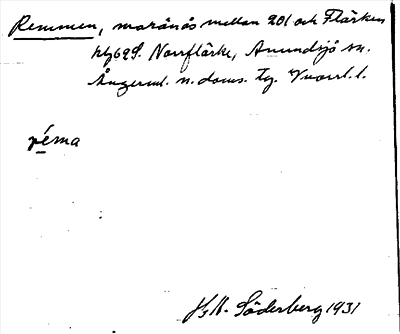 Remmen, moränås mellan 201 och Flärken
hfg 629. Norrflärke, Anundsjö sn.
Ångerml. n. doms. tg. Vnorrl. l.
réma
H. Söderberg 1931